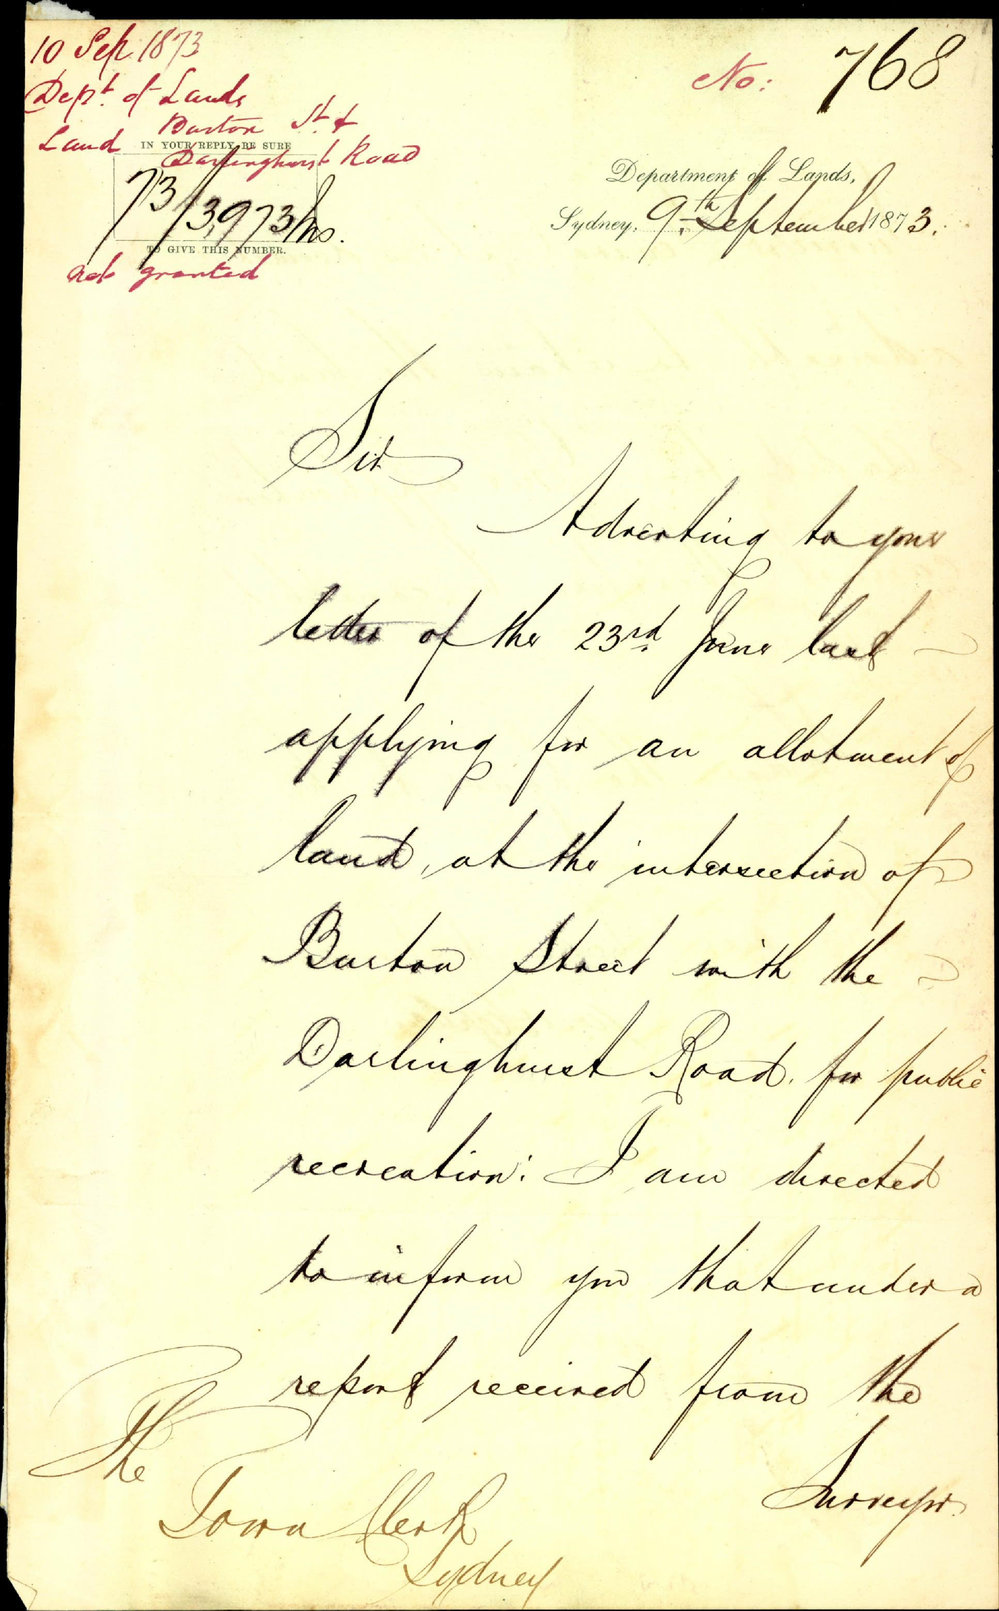 10 Sep. 1873
Dept. of Lands
Land Burton St. &
Darlinghurst Road
IN YOUR REPLY BE SURE
73/3,973 Ms.
TO GIVE THIS NUMBER.
not granted
No: 768
Department of Lands,
Sydney, 9th September 1873.
Sir
Adverting to your
letter of the 23rd June last
applying for an allotment of
land, at the intersection of
Burton Street with the
Darlinghurst Road, for public
recreation: I am directed
to inform you that under a
report received from the
Surveyor
The
Town Clerk
Sydney